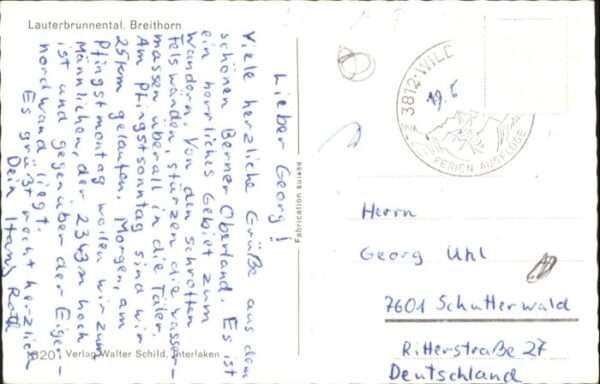 Lauterbrunnental. Breithorn
Lieber Georg!
Viele herzliche Grüße aus dem
schönen Berner Oberland. Es ist
ein herrliches Gebiet zum
Wandern. Von den schroffen
Felswänden, stürzen die Wasser-
massen überall in die Täler.
Am Pfingstsonntag sind wir
25km gelaufen. Morgen, am
Pfingstmontag wollen wir zum
Männlichen, der 2343m hoch
ist und gegenüber der Eiger-
nordwand liegt.
Es grüßt recht herzlich
Dein Hans Roth
320 Verlag Walter Schild, Interlaken
Fabrication suisse
3812 WILD
19.5
FERIEN AUSFLÜGE
Herrn
Georg Uhl
7601 Schutterwald
Ritterstraße 27
Deutschland